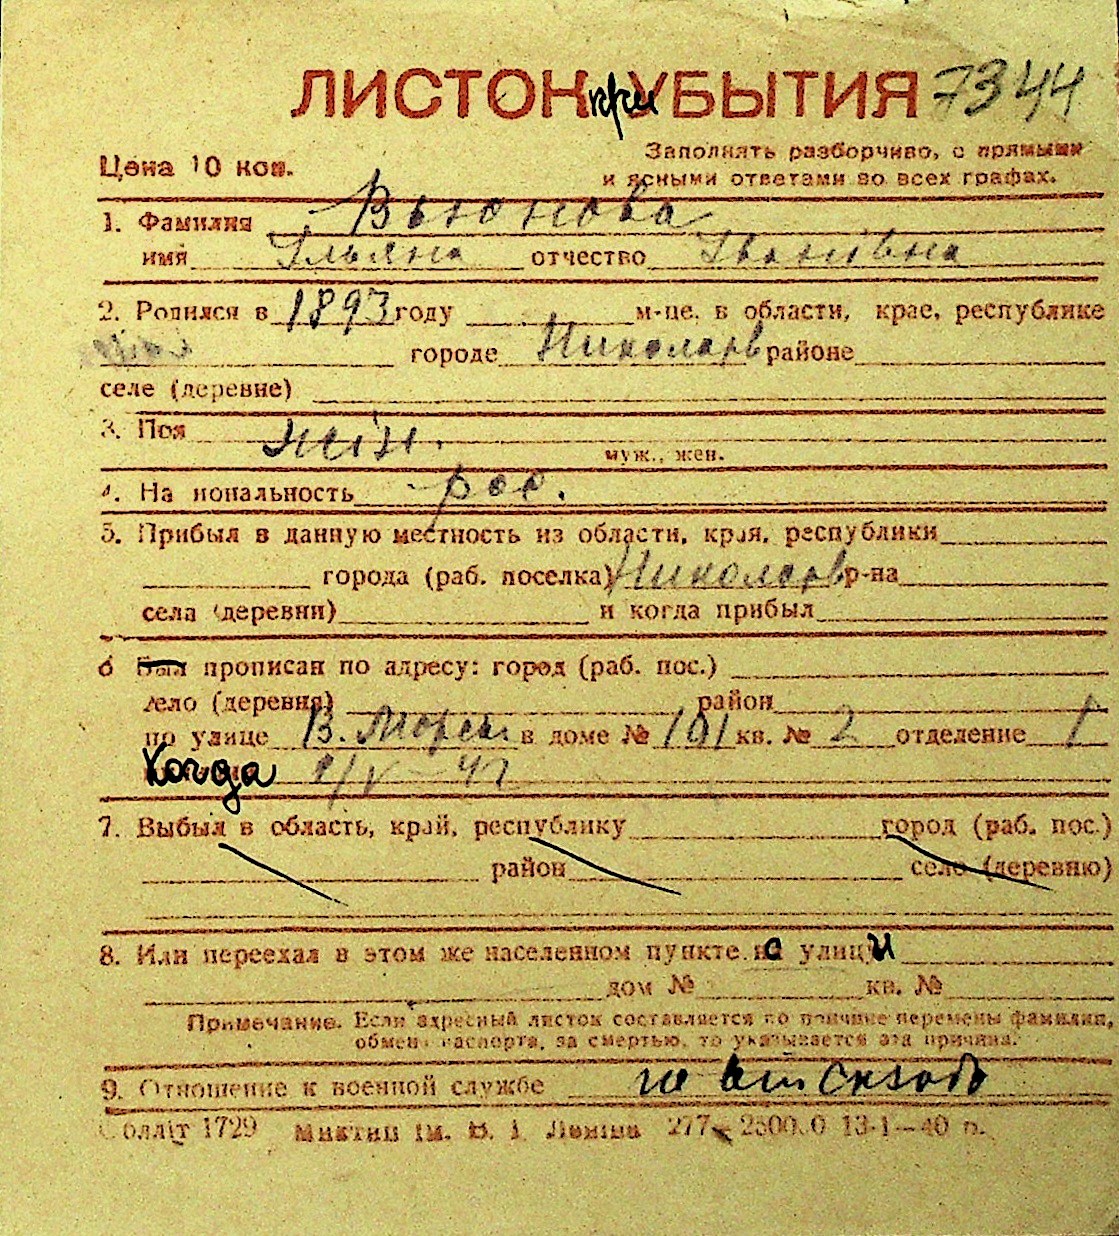 ЛИСТОК при УБЫТИЯ 7344
Цена 10 коп.
Заполнять разборчиво, с прямыми
и ясными ответами во всех графах.
1. Фамилия Вьюнова
имя Ільяна отчество Іванівна
2. Родился в 1893 году м-це. в области, крае, республике
городе Николаев районе
селе (деревне)
3. Пол жін.
муж., жен.
4. На иональность рос.
5. Прибыл в данную местность из области, края, республики
города (раб. поселка) Николаев р-на
села (деревни) и когда прибыл
6 Был прописан по адресу: город (раб. пос.)
село (деревня) район
по улице В. Морск в доме № 101 кв. № 2 отделение 1
Когда
7. Выбыл в область, край, республику город (раб. пос.)
район село (деревню)
8. Или переехал в этом же населенном пункте с улицы
дом № кв. №
Примечание. Если адресный листок составляется по причине перемены фамилии,
обмен паспорта, за смертью, то указывается эта причина.
9. Отношение к военной службе
Облліт 1729 ім. В. І. Леніна 277 13-1-40 р.